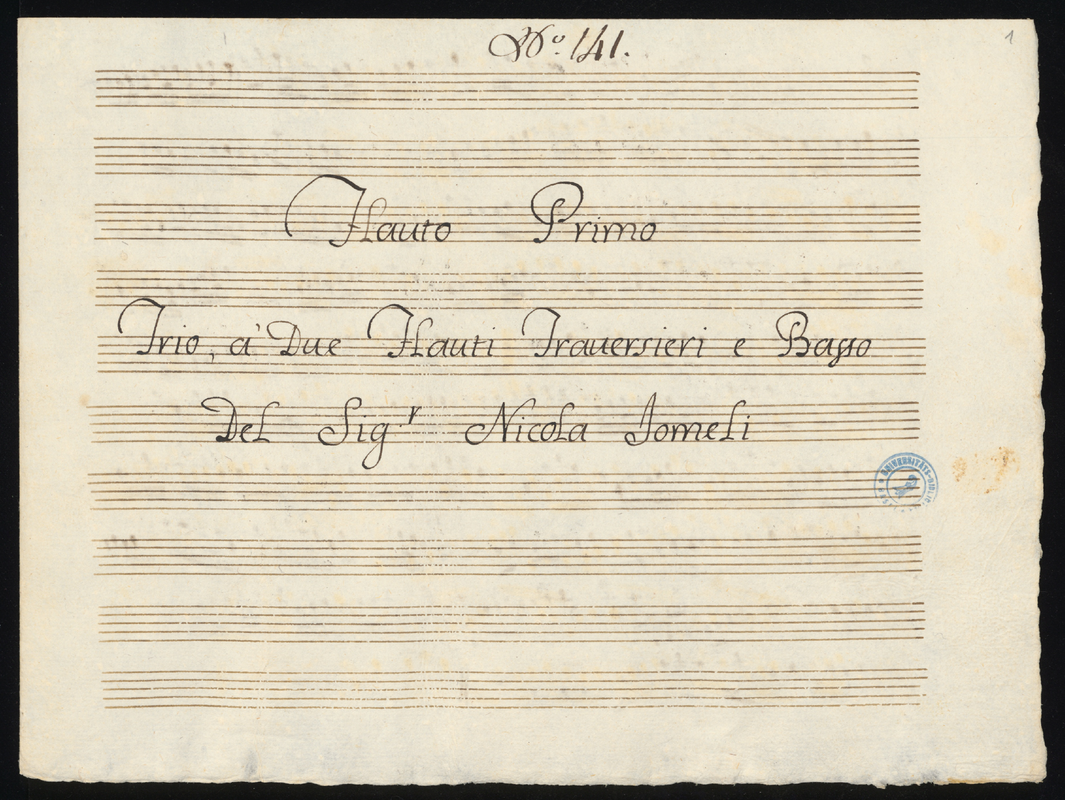 No. 141.
1
Flauto Primo
Trio, à Due Flauti Trauersieri e Basso
Del Sig.r Nicola Jomeli
UNIVERSITÄTS-BIBLIO